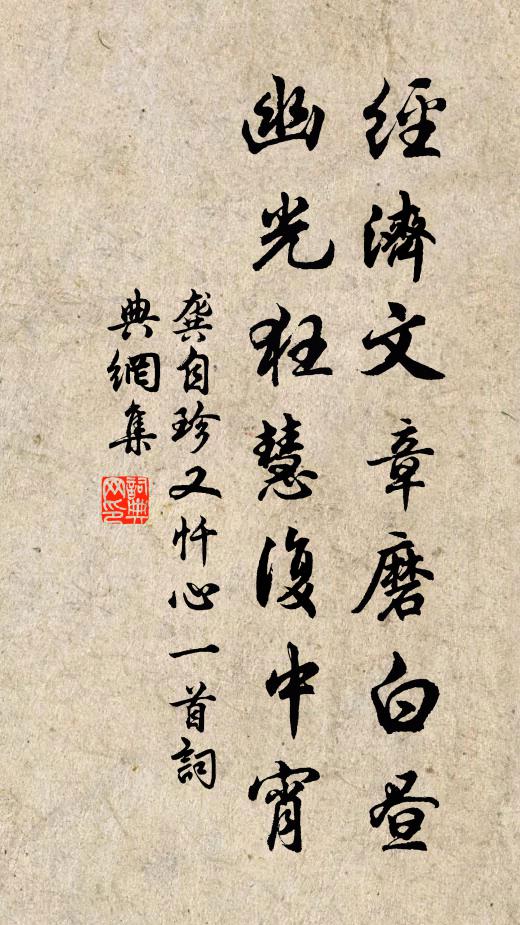 經濟文章磨白昼
幽光狂慧復中宵
龔自珍又忏心一首詞
典網集
詞典
网印